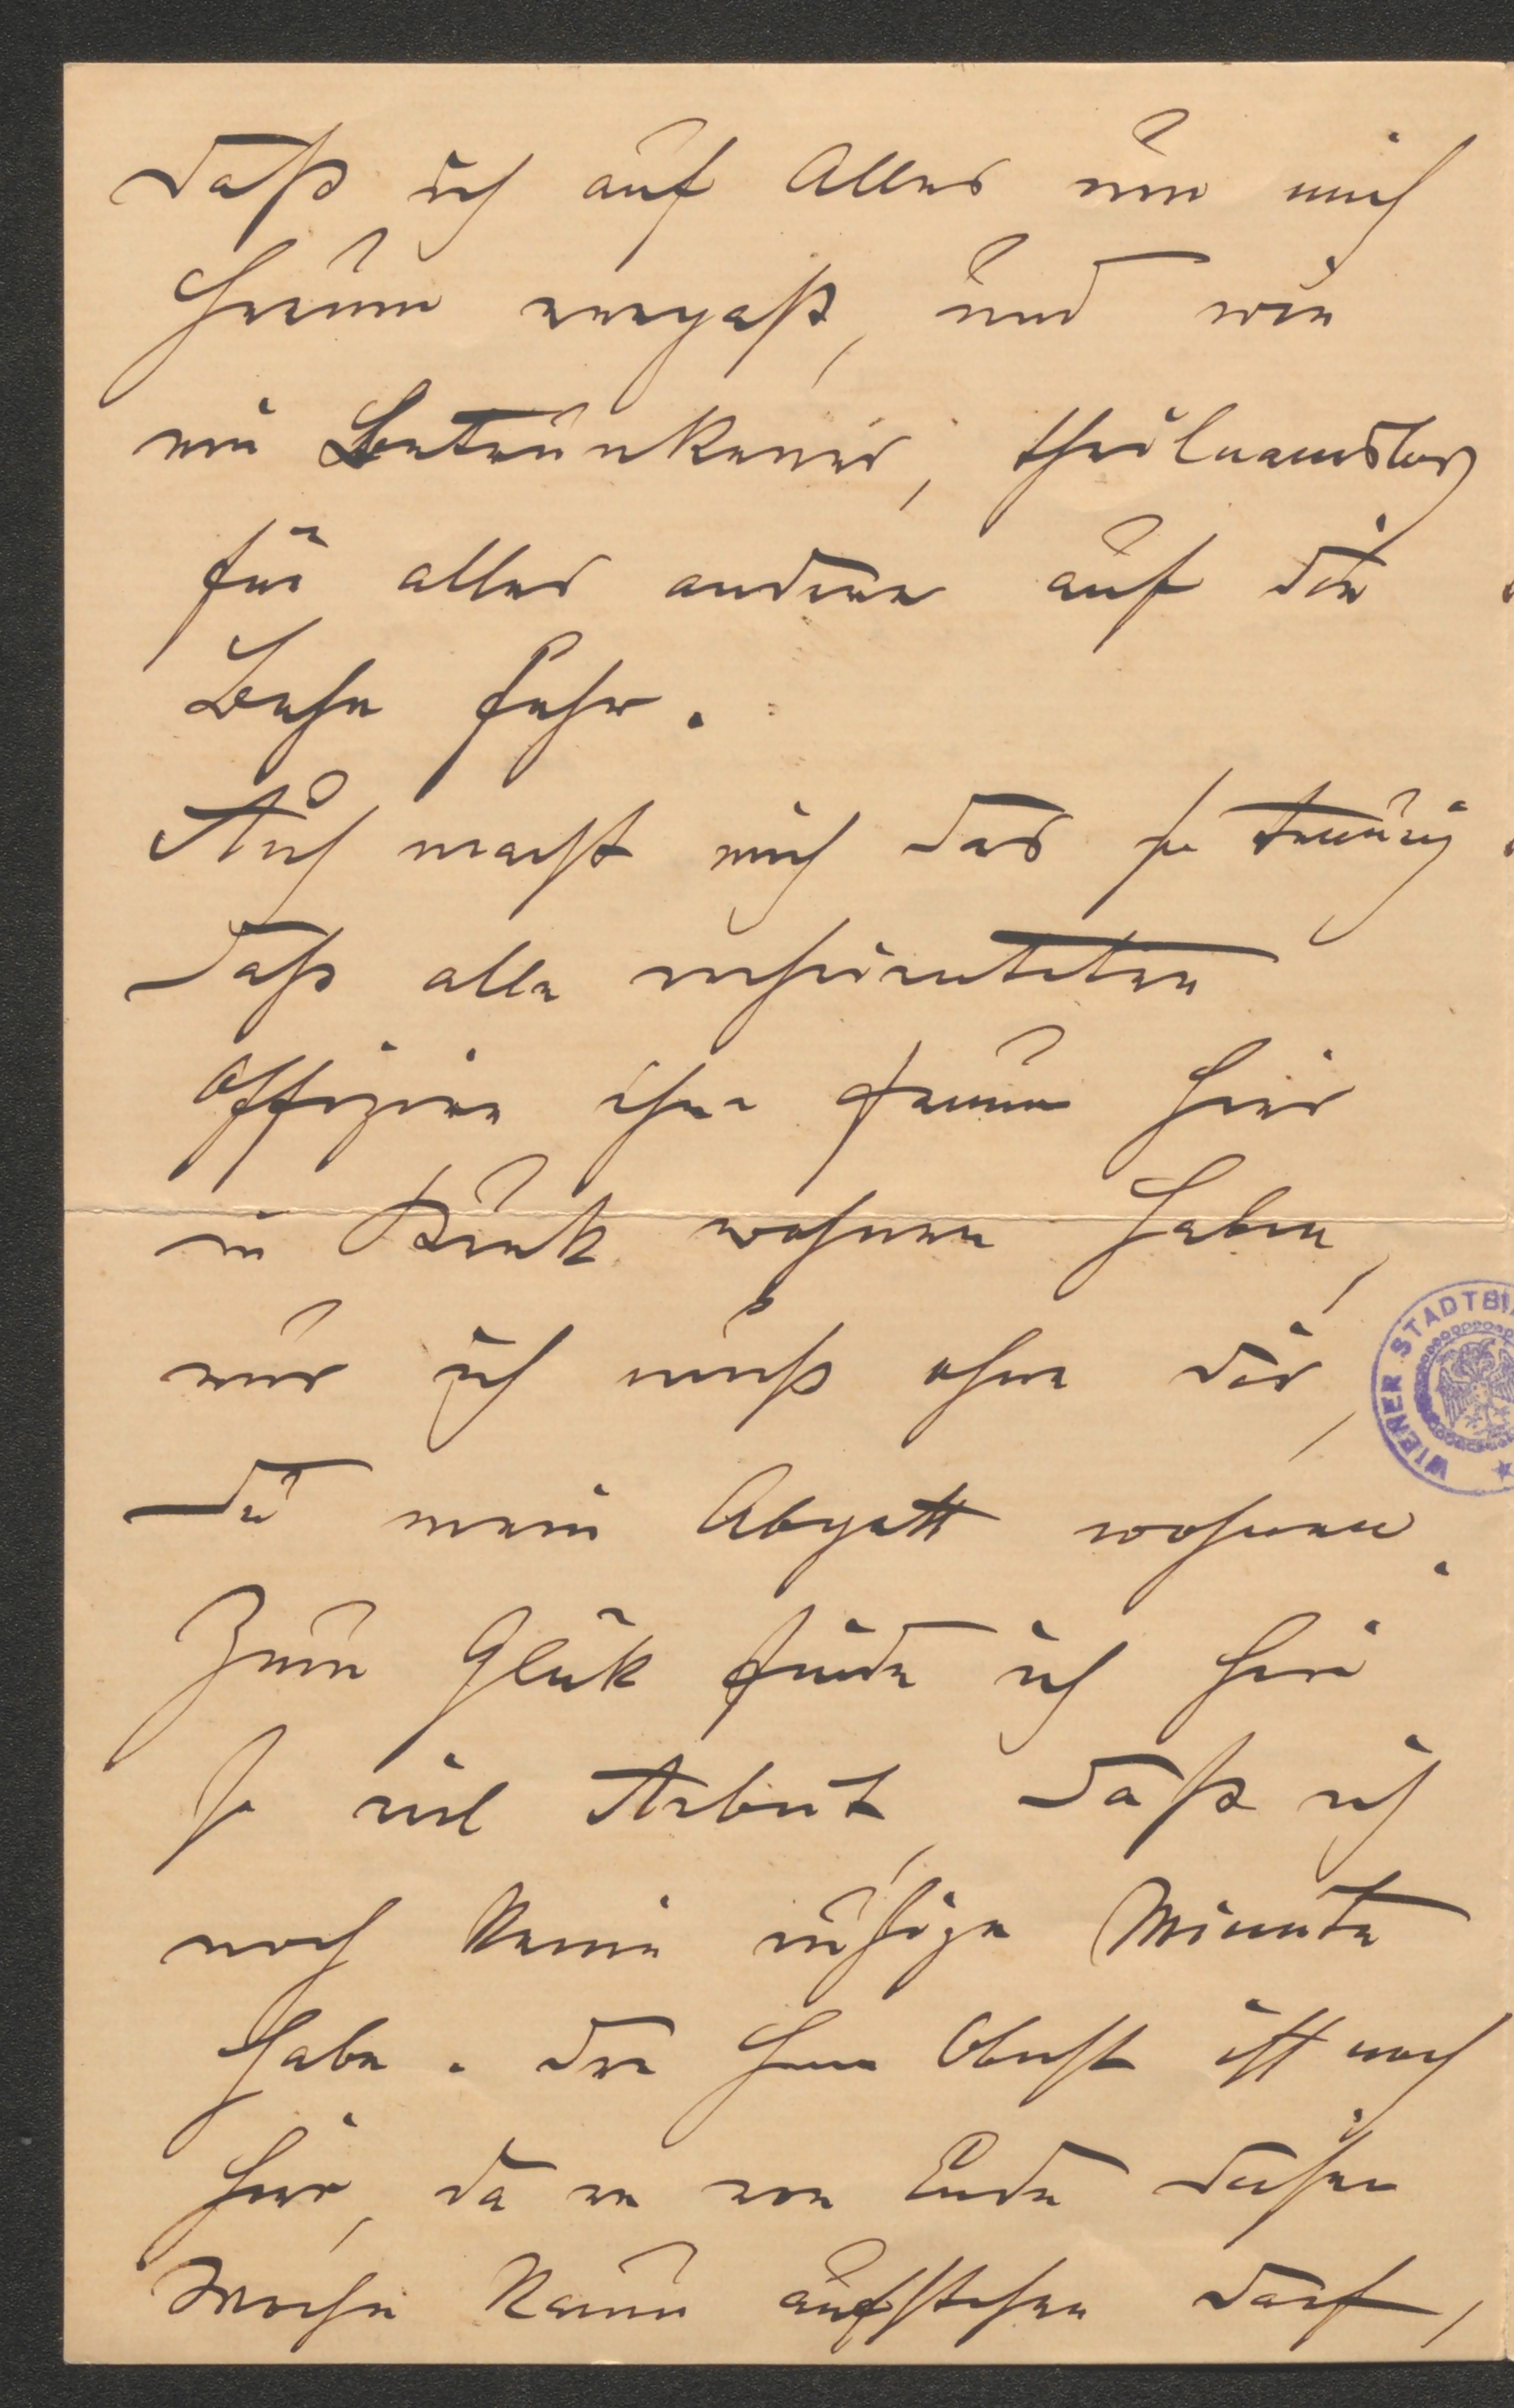 daß ich auf Alles um mich
herum vergaß, und wie
ein Betrunkener, theilnamslos
für alles andere auf die
Bahn fuhr.
Auch macht mich das so traurig
daß alle verheirateten
Offiziere ihre Frauen hier
in Bruk wohnen haben,
nur ich muß ohne dir,
du mein Abgott wohnen.
Zum Glük finde ich hier
so viel Arbeit, daß ich
noch keine ruhige Minute
habe. Der Herr Oberst ist noch
hier, da er vor Ende dieser
Woche kaum aufstehen darf,
WIENER STADTBI